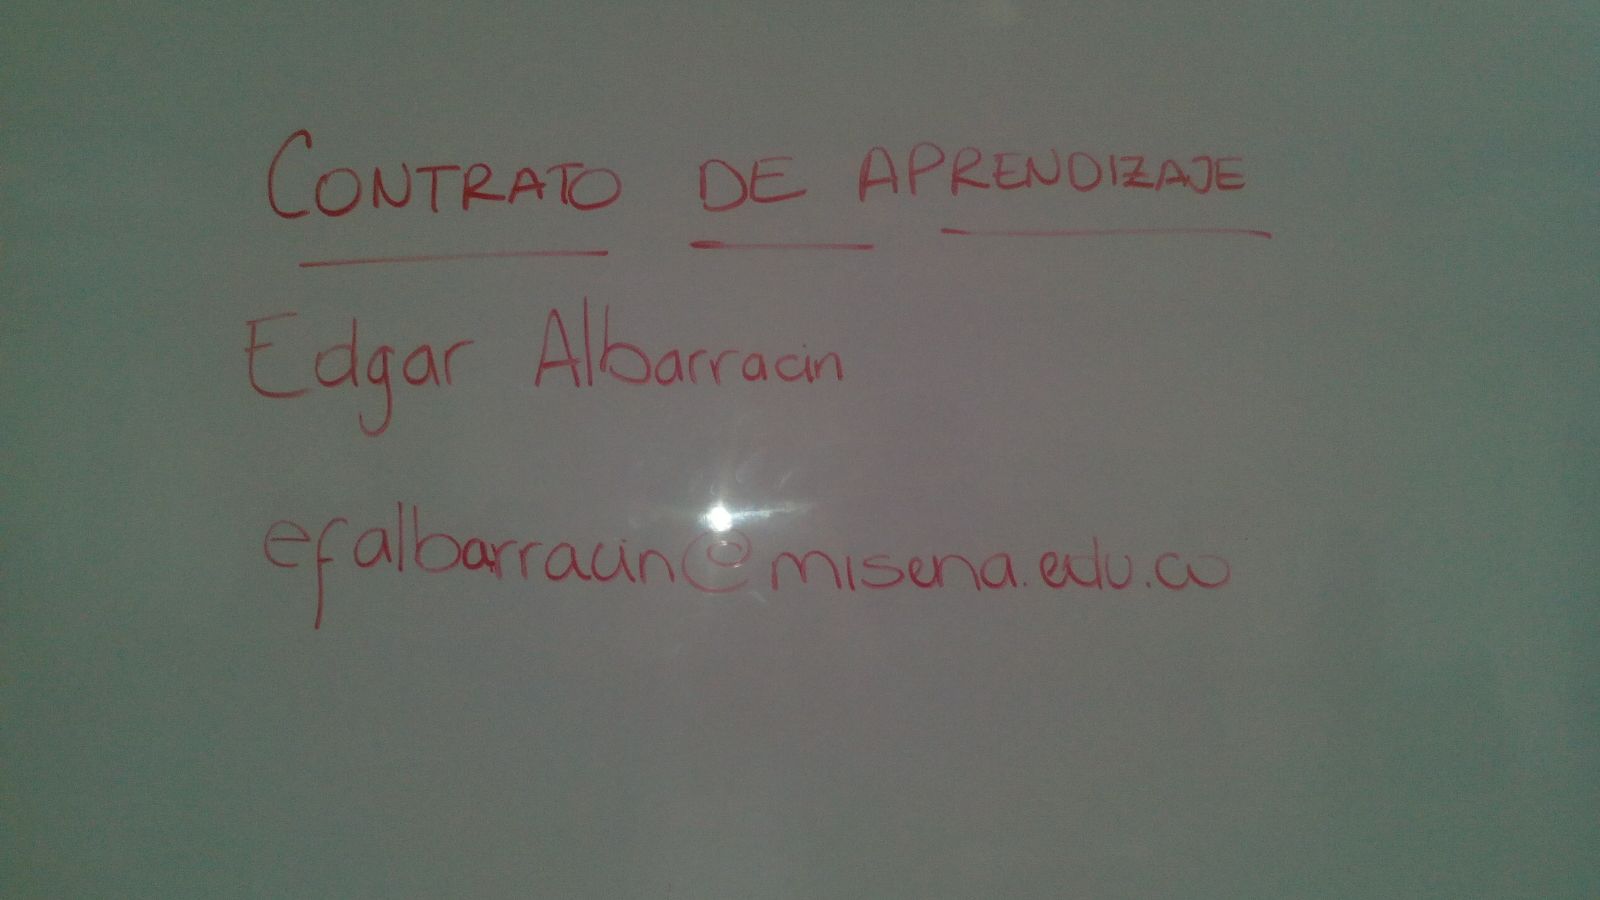 CONTRATO DE APRENDIZAJE
Edgar Albarracin
efalbarracin@misena.edu.co